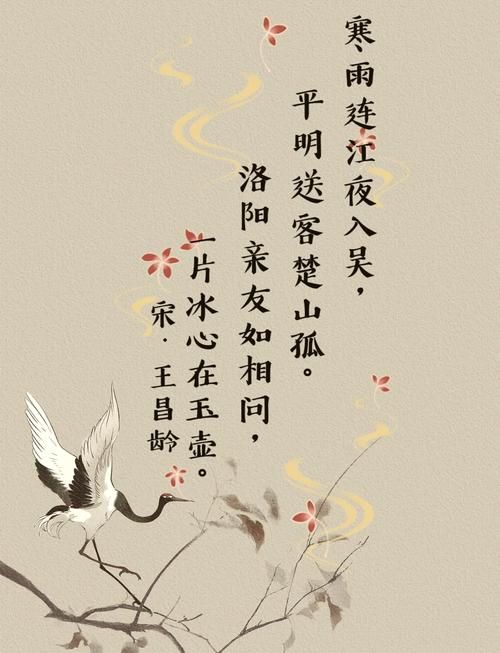 寒雨连江夜入吴，
平明送客楚山孤。
洛阳亲友如相问，
一片冰心在玉壶。
宋·王昌龄